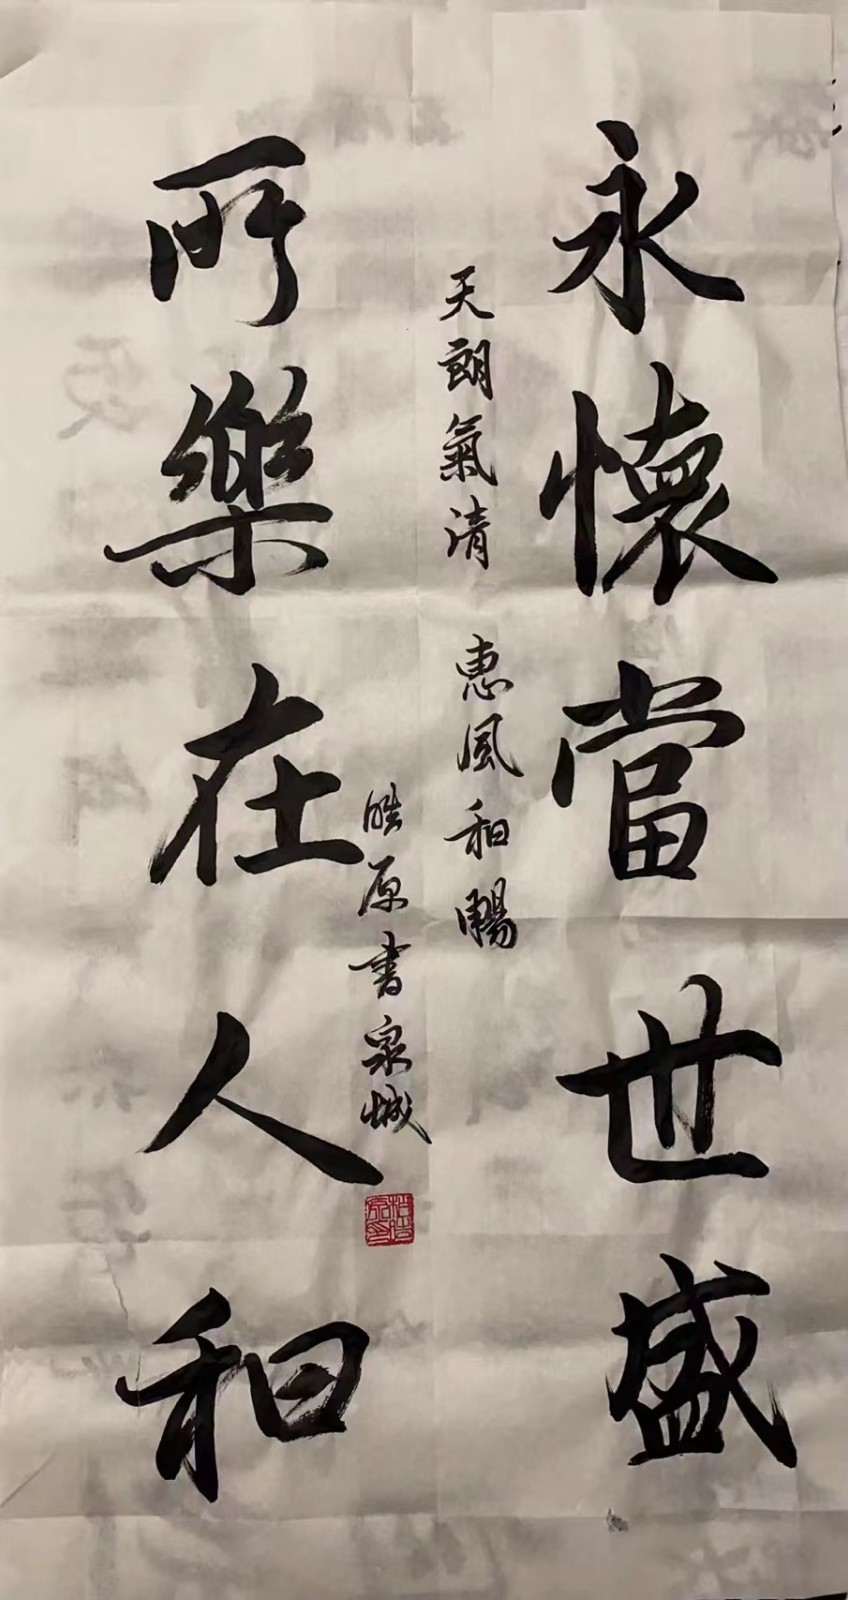 永懷當世盛
天朗氣清 惠風和暢
皓原書泉城
所樂在人和